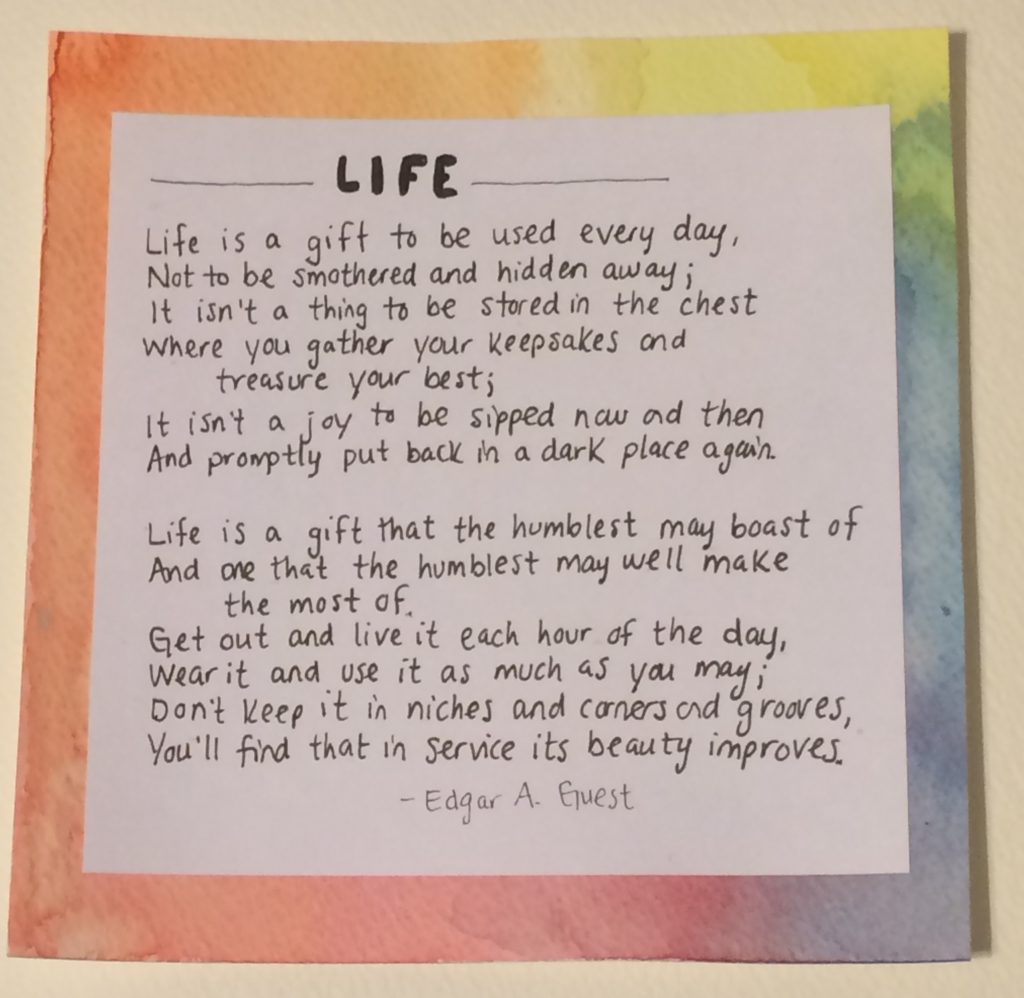 LIFE
Life is a gift to be used every day,
Not to be smothered and hidden away;
It isn't a thing to be stored in the chest
Where you gather your keepsakes and
treasure your best;
It isn't a joy to be sipped now and then
And promptly put back in a dark place again.
Life is a gift that the humblest may boast of
And one that the humblest may well make
the most of.
Get out and live it each hour of the day,
Wear it and use it as much as you may;
Don't keep it in niches and corners and grooves,
You'll find that in service its beauty improves.
- Edgar A. Guest